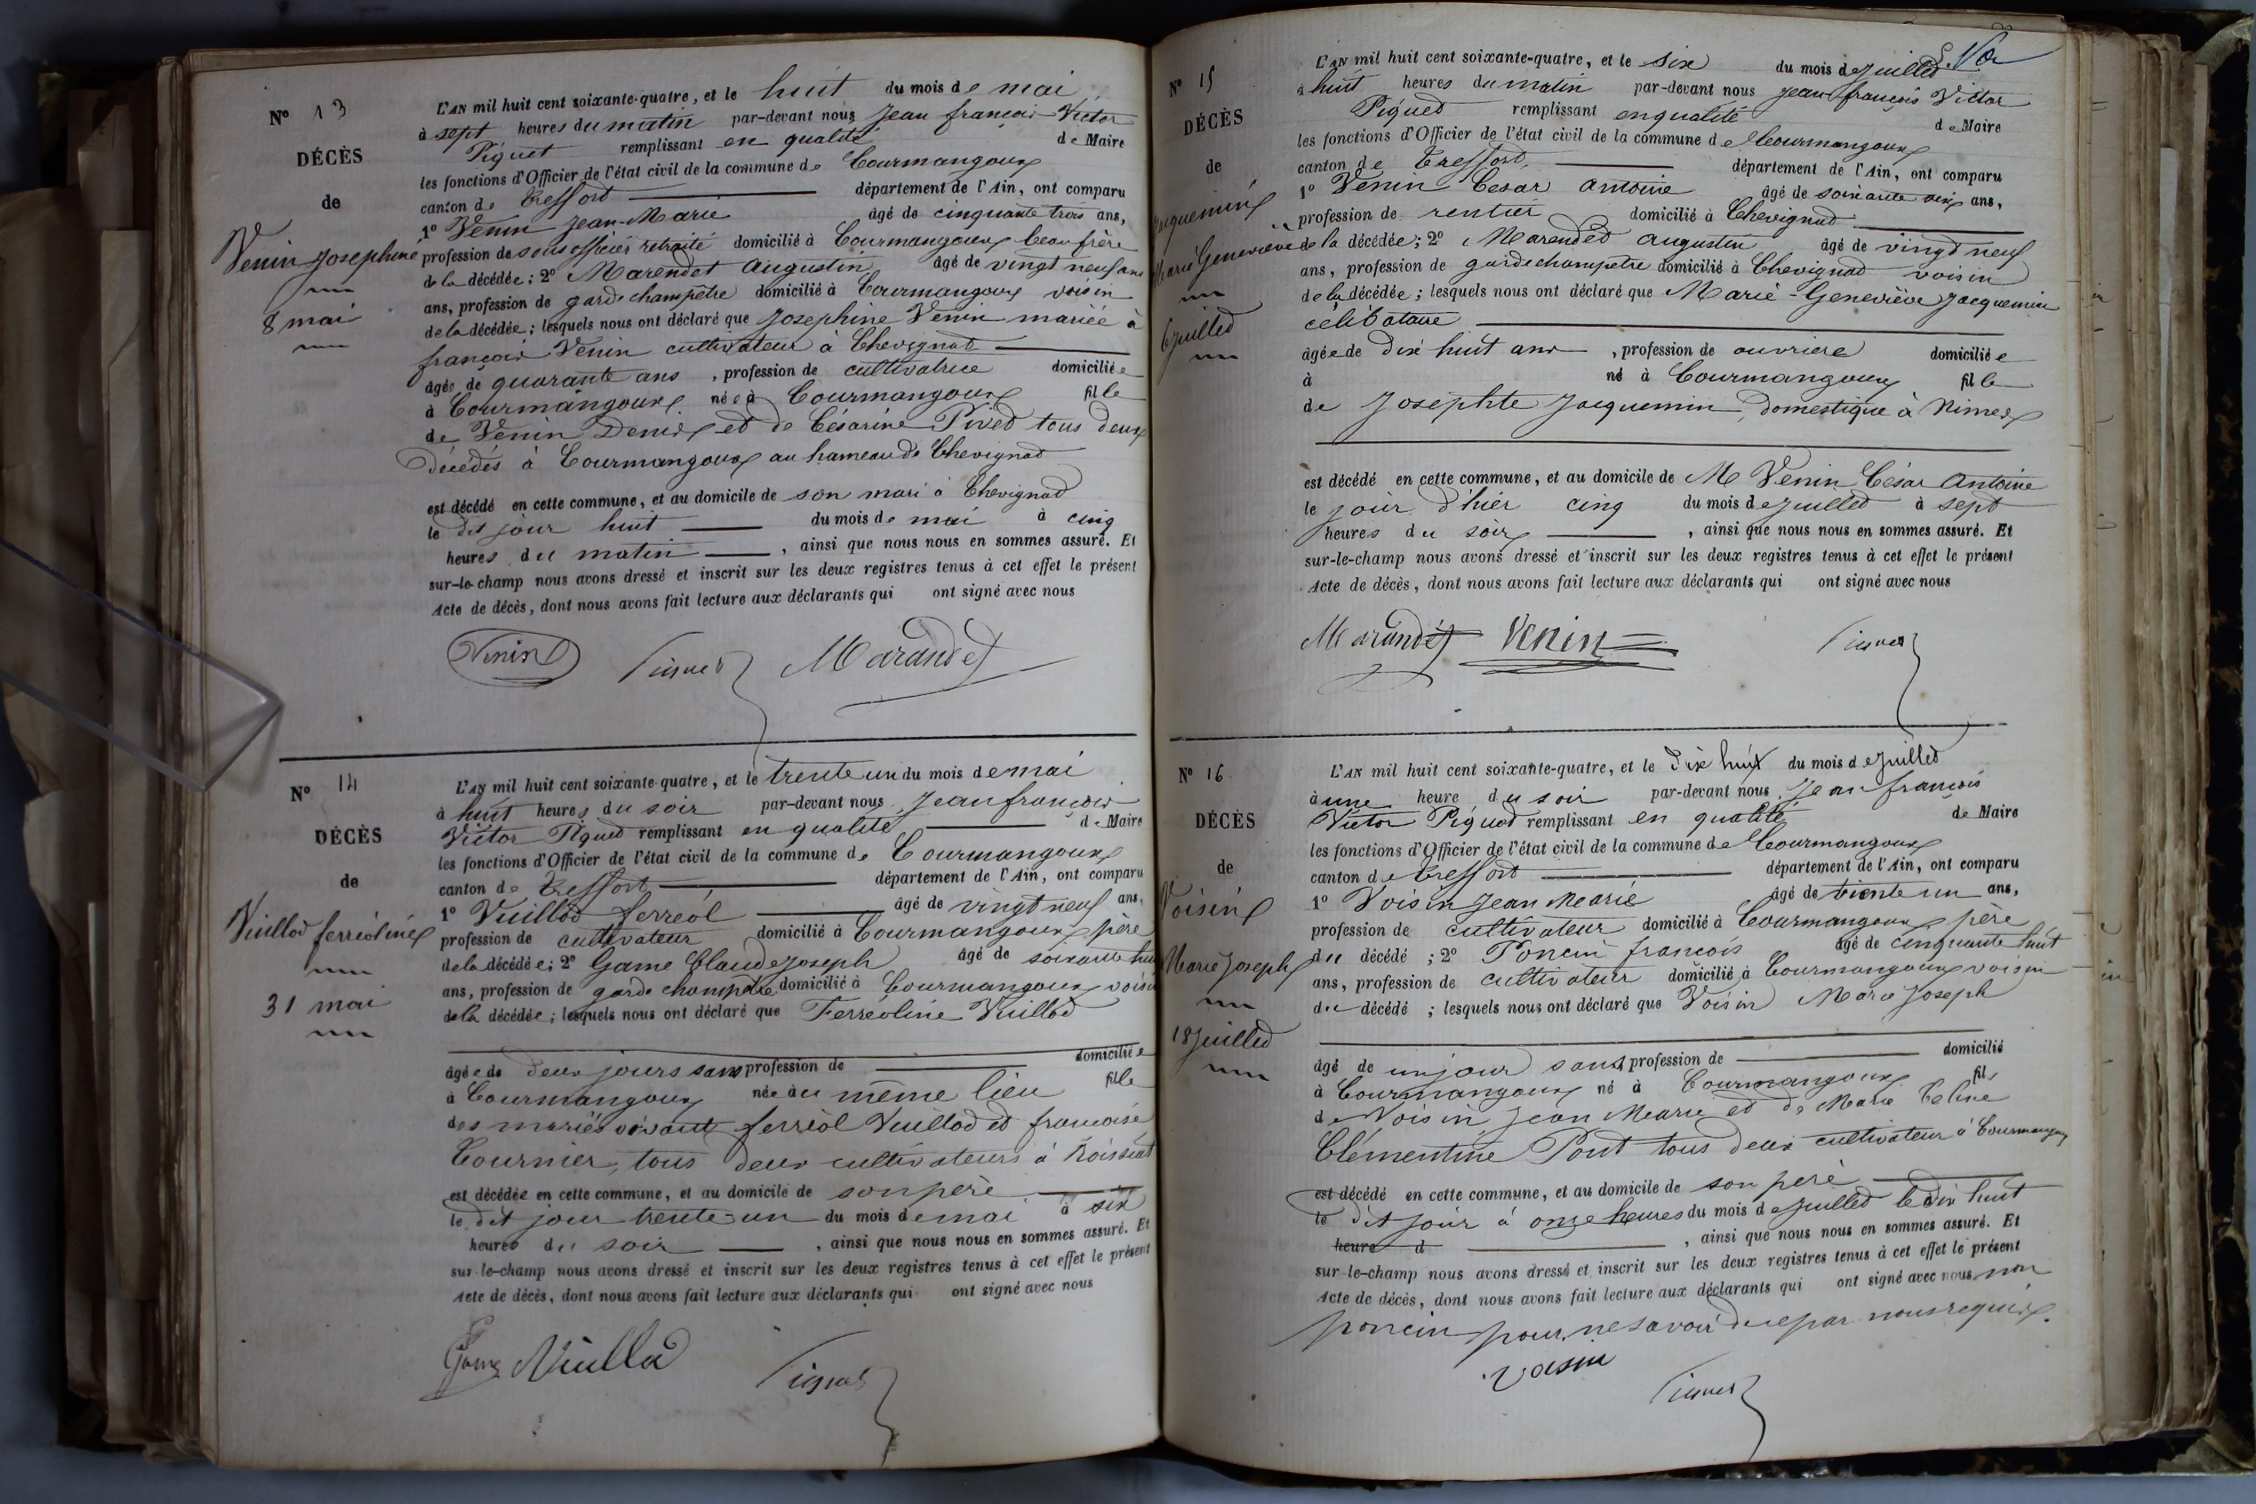 N° 13
DÉCÈS
de
Venin Josephine
8 mai
L'AN mil huit cent soixante-quatre, et le huit du mois de mai
à sept heures du matin par-devant nous Jean françois Victor
Piquet remplissant en qualité de Maire
les fonctions d'Officier de l'état civil de la commune de Courmangoux
canton de Treffort département de l'Ain, ont comparu
1° Venin Jean-Marie âgé de cinquante trois ans,
profession de sous officier retraité domicilié à Courmangoux beau frère
de la décédée; 2° Marendet Augustin âgé de vingt neuf ans
ans, profession de garde champêtre domicilié à Courmangoux voisin
de la décédée; lesquels nous ont déclaré que Josephine Venin mariée à
françois Venin cultivateur à Chevignat
âgée de quarante ans, profession de cultivatrice domiciliée
à Courmangoux née à Courmangoux fille
de Venin Denis et de Césarine Pivet tous deux
décédés à Courmangoux au hameau de Chevignat
est décédé en cette commune, et au domicile de son mari à Chevignat
le dit jour huit du mois de mai à cinq
heures du matin, ainsi que nous nous en sommes assuré. Et
sur-le-champ nous avons dressé et inscrit sur les deux registres tenus à cet effet le présent
Acte de décès, dont nous avons fait lecture aux déclarants qui ont signé avec nous
Venin Piquet Marandet
N° 14
DÉCÈS
de
Vuillod ferréoline
31 mai
L'AN mil huit cent soixante-quatre, et le trente un du mois de mai
à huit heures du soir par-devant nous Jean françois
Victor Piquet remplissant en qualité de Maire
les fonctions d'Officier de l'état civil de la commune de Courmangoux
canton de Treffort département de l'Ain, ont comparu
1° Vuillod ferréol âgé de vingt neuf ans,
profession de cultivateur domicilié à Courmangoux père
de la décédée; 2° Game Claude Joseph âgé de soixante huit
ans, profession de garde champêtre domicilié à Courmangoux voisin
de la décédée; lesquels nous ont déclaré que Ferréoline Vuillod
âgée de deux jours sans profession de domiciliée
à Courmangoux née au même lieu fille
des mariés vivant ferréol Vuillod et françoise
Tournier, tous deux cultivateurs à Roissiat
est décédée en cette commune, et au domicile de son père
le dit jour trente-un du mois de mai à six
heures du soir, ainsi que nous nous en sommes assuré. Et
sur-le-champ nous avons dressé et inscrit sur les deux registres tenus à cet effet le présent
Acte de décès, dont nous avons fait lecture aux déclarants qui ont signé avec nous
Game Vuillod Piquet
N° 15
DÉCÈS
de
Jacquemin
Marie Geneviève
6 juillet
L'AN mil huit cent soixante-quatre, et le six du mois de juillet
à huit heures du matin par-devant nous Jean françois Victor
Piquet remplissant en qualité de Maire
les fonctions d'Officier de l'état civil de la commune de Courmangoux
canton de Treffort, département de l'Ain, ont comparu
1° Venin César Antoine âgé de soixante six ans,
profession de rentier domicilié à Chevignat
de la décédée; 2° Marendet Augustin âgé de vingt neuf
ans, profession de garde champêtre domicilié à Chevignat voisin
de la décédée; lesquels nous ont déclaré que Marie-Geneviève Jacquemin
célibataire
âgée de dix huit ans, profession de ouvrière domiciliée
à né à Courmangoux fille
de Josephte Jacquemin, domestique à Nimes
est décédé en cette commune, et au domicile de M Venin César Antoine
le jour d'hier cinq du mois de juillet à sept
heures du soir, ainsi que nous nous en sommes assuré. Et
sur-le-champ nous avons dressé et inscrit sur les deux registres tenus à cet effet le présent
Acte de décès, dont nous avons fait lecture aux déclarants qui ont signé avec nous
Marandet Venin Piquet
N° 16
DÉCÈS
de
Voisin
Marie Joseph
18 juillet
L'AN mil huit cent soixante-quatre, et le dix huit du mois de juillet
à une heure du soir par-devant nous Jean françois
Victor Piquet remplissant en qualité de Maire
les fonctions d'Officier de l'état civil de la commune de Courmangoux
canton de Treffort département de l'Ain, ont comparu
1° Voisin Jean Marie âgé de trente un ans,
profession de cultivateur domicilié à Courmangoux père
du décédé; 2° Poncin françois âgé de cinquante huit
ans, profession de cultivateur domicilié à Courmangoux voisin
du décédé; lesquels nous ont déclaré que Voisin Marie Joseph
âgé de un jour sans profession de domicilié
à Courmangoux né à Courmangoux fils
de Voisin Jean Marie et de Marie Celine
Clémentine Pont tous deux cultivateur à Courmangoux
est décédé en cette commune, et au domicile de son père
le dit jour à onze heures du mois de juillet le dix huit
heure d, ainsi que nous nous en sommes assuré. Et
sur-le-champ nous avons dressé et inscrit sur les deux registres tenus à cet effet le présent
Acte de décès, dont nous avons fait lecture aux déclarants qui ont signé avec nous non
poncin pour ne savoir de ce par nous requis.
Voisin
Piquet